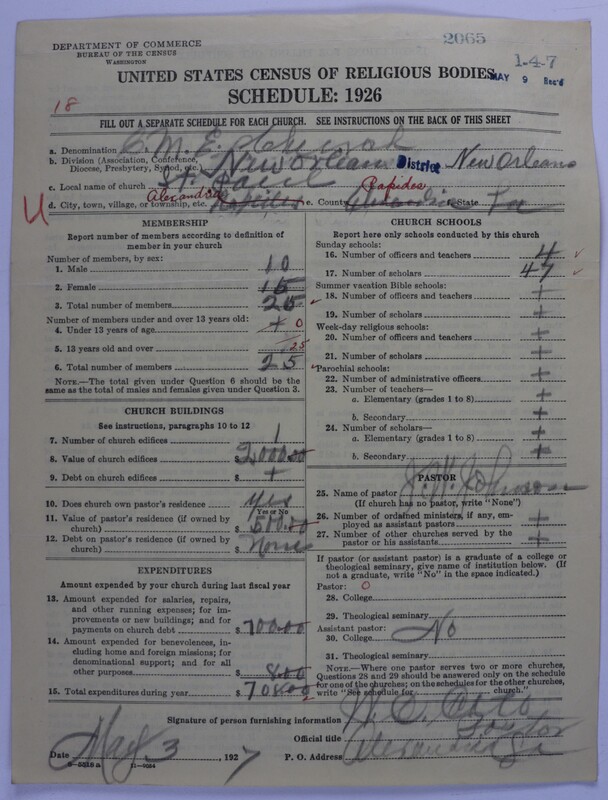 DEPARTMENT OF COMMERCE
BUREAU OF THE CENSUS
WASHINGTON
2065
1-4-7
MAY 9 Rec'd
UNITED STATES CENSUS OF RELIGIOUS BODIES
SCHEDULE: 1926
18
FILL OUT A SEPARATE SCHEDULE FOR EACH CHURCH. SEE INSTRUCTIONS ON THE BACK OF THIS SHEET
a. Denomination C. M. E. Church
b. Division (Association, Conference, Diocese, Presbytery, Synod, etc.) New Orleans District New Orleans
c. Local name of church St. Paul
d. City, town, village, or township, etc. Alexandria Rapides e. County Rapides Alexandria State La
MEMBERSHIP
Report number of members according to definition of member in your church
Number of members, by sex:
1. Male 10
2. Female 15
3. Total number of members 25
Number of members under and over 13 years old:
4. Under 13 years of age + 0
5. 13 years old and over 25
6. Total number of members 25
NOTE.—The total given under Question 6 should be the same as the total of males and females given under Question 3.
CHURCH BUILDINGS
See instructions, paragraphs 10 to 12
7. Number of church edifices 1
8. Value of church edifices $2000.00
9. Debt on church edifices $ +
10. Does church own pastor's residence? Yes
Yes or No
11. Value of pastor's residence (if owned by church) $500.00
12. Debt on pastor's residence (if owned by church) $ None
EXPENDITURES
Amount expended by your church during last fiscal year
13. Amount expended for salaries, repairs, and other running expenses; for improvements or new buildings; and for payments on church debt $700.00
14. Amount expended for benevolences, including home and foreign missions; for denominational support; and for all other purposes $8.00
15. Total expenditures during year $708.00
CHURCH SCHOOLS
Report here only schools conducted by this church
Sunday schools:
16. Number of officers and teachers 4
17. Number of scholars 47
Summer vacation Bible schools:
18. Number of officers and teachers +
19. Number of scholars +
Week-day religious schools:
20. Number of officers and teachers +
21. Number of scholars +
Parochial schools:
22. Number of administrative officers +
23. Number of teachers—
a. Elementary (grades 1 to 8) +
b. Secondary +
24. Number of scholars—
a. Elementary (grades 1 to 8) +
b. Secondary +
PASTOR
25. Name of pastor Johnson
(If church has no pastor, write "None")
26. Number of ordained ministers, if any, employed as assistant pastors +
27. Number of other churches served by the pastor or his assistants +
If pastor (or assistant pastor) is a graduate of a college or theological seminary, give name of institution below. (If not a graduate, write "No" in the space indicated.)
Pastor: 0
28. College
29. Theological seminary
Assistant pastor:
30. College No
31. Theological seminary
NOTE.—Where one pastor serves two or more churches, Questions 28 and 29 should be answered only on the schedule for one of the churches; on the schedules for the other churches, write "See schedule for church."
Signature of person furnishing information
Official title Pastor
Date May 3, 1927 P. O. Address Alexandria La